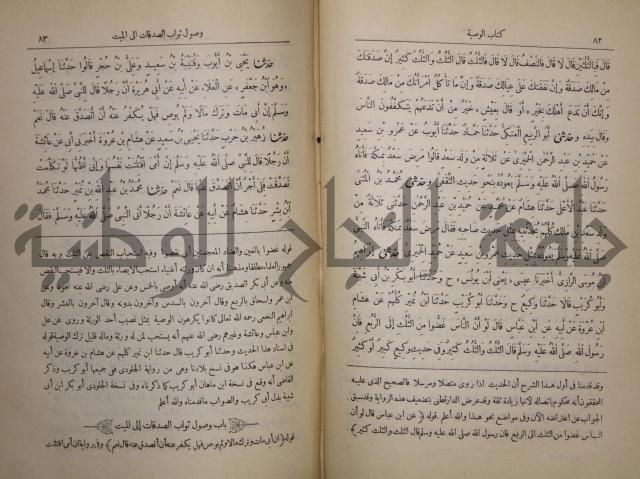 ٨٢
كتاب الوصية
قال فبالثلثين قال لا قال فالنصف قال لا قال فالثلث قال الثلث والثلث كثير إن صدقتك
من مالك صدقة وإن نفقتك على عيالك صدقة وإن ما تأكل امرأتك من مالك صدقة
وإنك أن تدع أهلك بخير «أو قال بعيش» خير من أن تدعهم يتكففون الناس
وقال بيده و حدثني أبو الربيع العتكي حدثنا حماد حدثنا أيوب عن عمرو بن سعيد
عن حميد بن عبد الرحمن الحميري عن ثلاثة من ولد سعد قالوا مرض سعد بمكة فأتاه
رسول الله صلى الله عليه وسلم يعوده بنحو حديث الثقفي وحدثني محمد بن المثنى
حدثنا عبد الأعلى حدثنا هشام عن محمد عن حميد بن عبد الرحمن حدثني ثلاثة من
ولد سعد بن مالك كلهم يحدثنيه بمثل حديث صاحبه فقال مرض سعد بمكة فأتاه النبي
صلى الله عليه وسلم يعوده بمثل حديث عمرو بن سعيد عن حميد الحميري حدثني إبراهيم
بن موسى الرازي أخبرنا عيسى «يعني ابن يونس» ح وحدثنا أبو بكر بن أبي شيبة
وأبو كريب قالا حدثنا وكيع ح وحدثنا أبو كريب حدثنا ابن نمير كلهم عن هشام
ابن عروة عن أبيه عن ابن عباس قال لو أن الناس غضوا من الثلث إلى الربع فإن
رسول الله صلى الله عليه وسلم قال الثلث والثلث كثير وفي حديث وكيع كبير أو كثير
وقد قدمنا في أول هذا الشرح أن الحديث اذا روى متصلا ومرسلا فالصحيح الذي عليه
المحققون أنه محكوم باتصاله لأنها زيادة ثقة وقد عرض الدارقطني بتضعيف هذه الرواية وقد سبق
الجواب عن اعتراضه الآن وفي مواضع نحو هذا والله أعلم. قوله ﴿عن ابن عباس قال لو أن
الناس غضوا من الثلث الى الربع فان رسول الله صلى الله عليه وسلم قال الثلث والثلث كثير﴾
وصول ثواب الصدقات الى الميت
٨٣
حدثنا يحيى بن أيوب وقتيبة بن سعيد وعلي بن حجر قالوا حدثنا إسماعيل
«وهو ابن جعفر» عن العلاء عن أبيه عن أبي هريرة أن رجلا قال للنبي صلى الله عليه
وسلم إن أبي مات وترك مالا ولم يوص فهل يكفر عنه أن أتصدق عنه قال نعم
حدثنا زهير بن حرب حدثنا يحيى بن سعيد عن هشام بن عروة أخبرني أبي عن عائشة
أن رجلا قال للنبي صلى الله عليه وسلم إن أمي افتلتت نفسها وإني أظنها لو تكلمت
تصدقت فلي أجر أن أتصدق عنها قال نعم حدثنا محمد بن عبد الله بن نمير حدثنا محمد
ابن بشر حدثنا هشام عن أبيه عن عائشة أن رجلا أتى النبي صلى الله عليه وسلم فقال
قوله غضوا بالغين والضاد المعجمتين أي نقصوا وفيه استحباب النقص عن الثلث وبه قال
جمهور العلماء مطلقا ومذهبنا أنه ان كان ورثته أغنياء استحب الايصاء بالثلث والا فيستحب النقص
منه وعن أبي بكر الصديق رضى الله عنه أنه أوصى بالخمس وعن على رضى الله عنه نحوه وعن
ابن عمر واسحاق بالربع وقال آخرون بالسدس وآخرون بدونه وقال آخرون بالعشر وقال
ابراهيم النخعي رحمه الله تعالى كانوا يكرهون الوصية بمثل نصيب أحد الورثة وروى عن على
وابن عباس وعائشة وغيرهم رضى الله عنهم أنه يستحب لمن له ورثة وماله قليل ترك الوصية قوله
في اسناد هذا الحديث وحدثنا أبو كريب قال حدثنا ابن نمير كلهم عن هشام بن عروة عن أبيه
عن ابن عباس هكذا هو في نسخ بلادنا وهي من رواية الجلودي ففي جميعها أبو كريب وذكر
القاضي أنه وقع في نسخة ابن ماهان أبو كريب كما ذكرناه وفي نسخة الجلودي أبو بكر ابن أبي
شيبة بدل أبي كريب والصواب ما قدمناه والله أعلم
باب وصول ثواب الصدقات إلى الميت
قوله ﴿ان أبي مات وترك مالا ولم يوص فهل يكفر عنه أن أتصدق عنه قال نعم﴾ وفي رواية ان أمي افتلتت
جامعة النجاح الوطنية